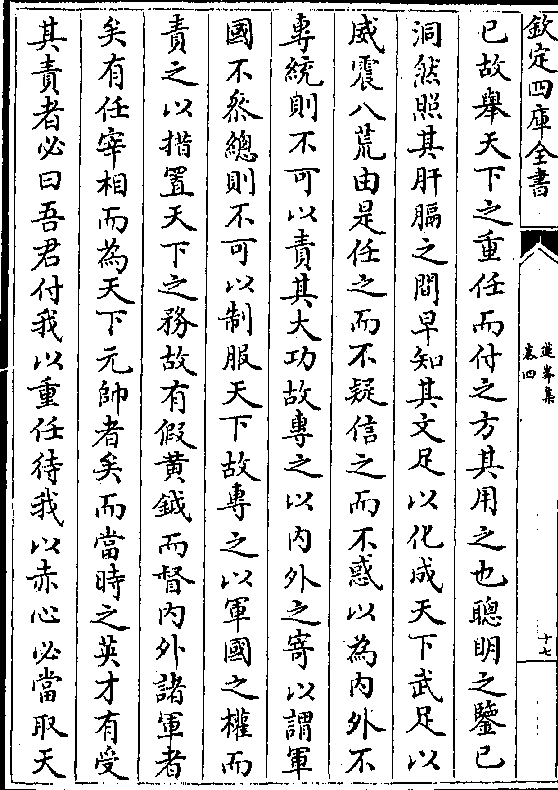 欽定四庫全書
蓮峯集
卷四
十七
已故舉天下之重任而付之方其用之也聰明之鑒已
洞然照其肝膈之間早知其文足以化成天下武足以
威震八荒由是任之而不疑信之而不惑以為内外不
專統則不可以責其大功故專之以内外之寄以謂軍
國不叅總則不可以制服天下故專之以軍國之權而
責之以措置天下之務故有假黄鉞而督内外諸軍者
矣有任宰相而為天下元帥者矣而當時之英才有受
其責者必曰吾君付我以重任待我以赤心必當取天